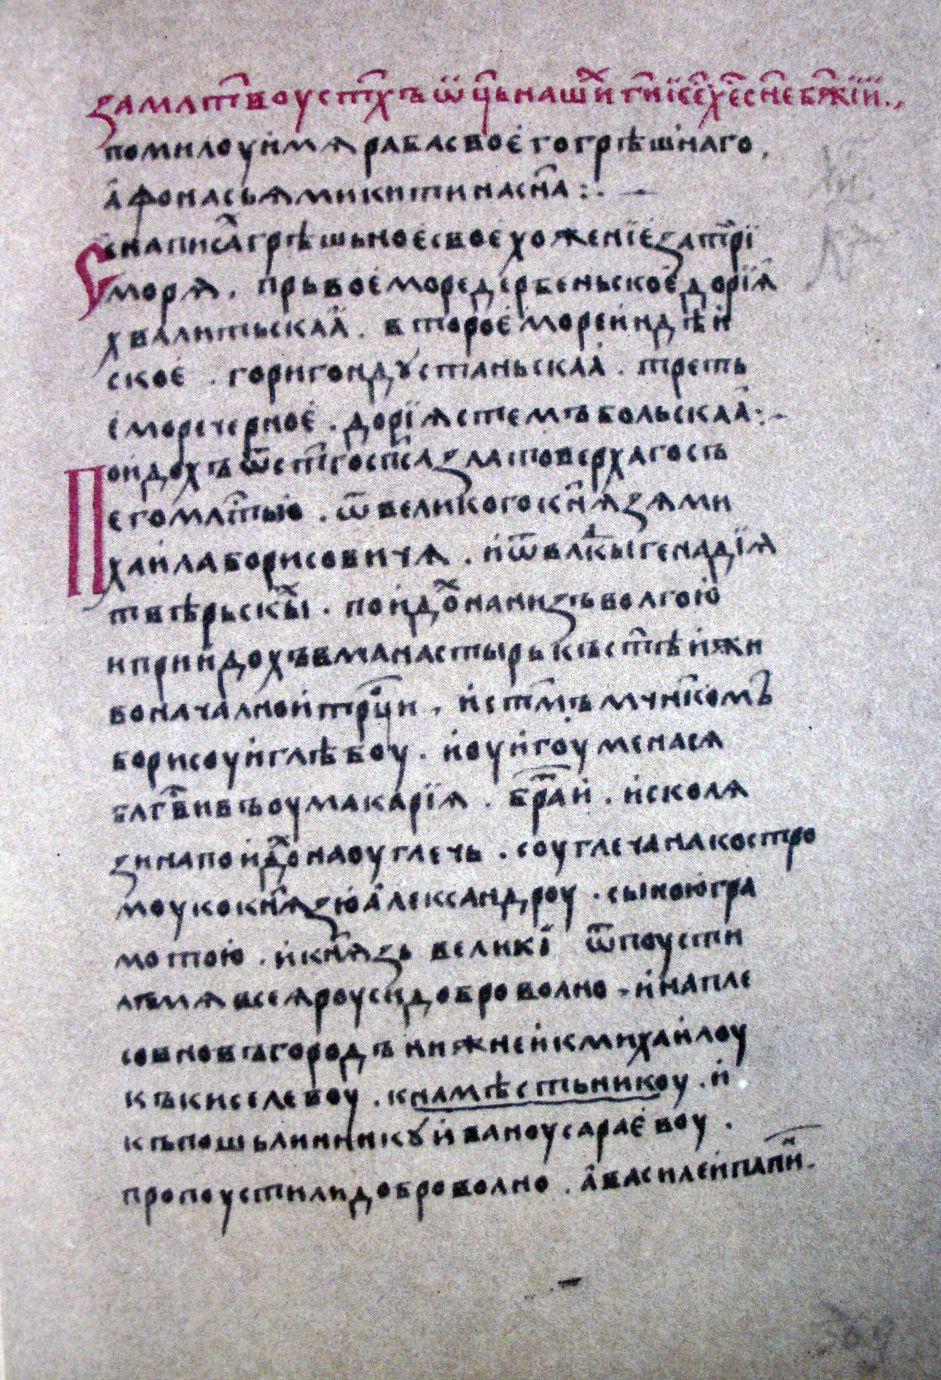 замлⷭтвоу стⷯхъ ѿц҃ь нашиⷯ гиⷭ҇ іс҃е хе҃ сн҃е бж҃їи.,
помилоуи мѧ раба своє́го грѣшнаго,
а҆фонасьѧ микитина сн҃а :·
Се написаⷯ грѣшьноє своє хожениє за три
морѧ. прьвоє́ море дербеньскоє дорїа҆
хвалитьскаа҆. второє мореи҆ндѣи҆
скоє́. гори гондустаньскаа҆. треть
є моречерноє́. дорїѧ стемъбольскаа҆ :·
Поидохъ ѿ ст҃го сп҃са златоверхаго съ
его млⷭтью. ѿ великого кн҃зѧ ми
хаила борисовичѧ. и҆ ѿ влⷣкы генадїѧ
твѣрьскыⷯ. поидоⷯ нанизъ волгою
и приидохъ вманастырь къст҃ѣи жи
воначалнои трⷪци. и҆ ст҃мъ мчн҃комъ
борисоу и҆ глѣбоу. и҆ оу и҆гоуменасѧ
блг҃вивъ оу макарїѧ. браⷮи. и҆ сколѧ
зина поидоⷯ на оуглечь. соуглеча накостро
моу ко кн҃зю а҆лександроу. сыною гра
мотою. и҆ кн҃зь великї ѿпоусти
лъмѧ всеѧ роуси доброволно. и҆ напле
со вновъгородъ нижнеи к михаи҆лоу
къ киселевоу. к намѣстьникоу. и҆
къ пошьлиннику и҆ваноу сарає́воу.
пропоустили доброволно. а҆ василеи папиⷩ.